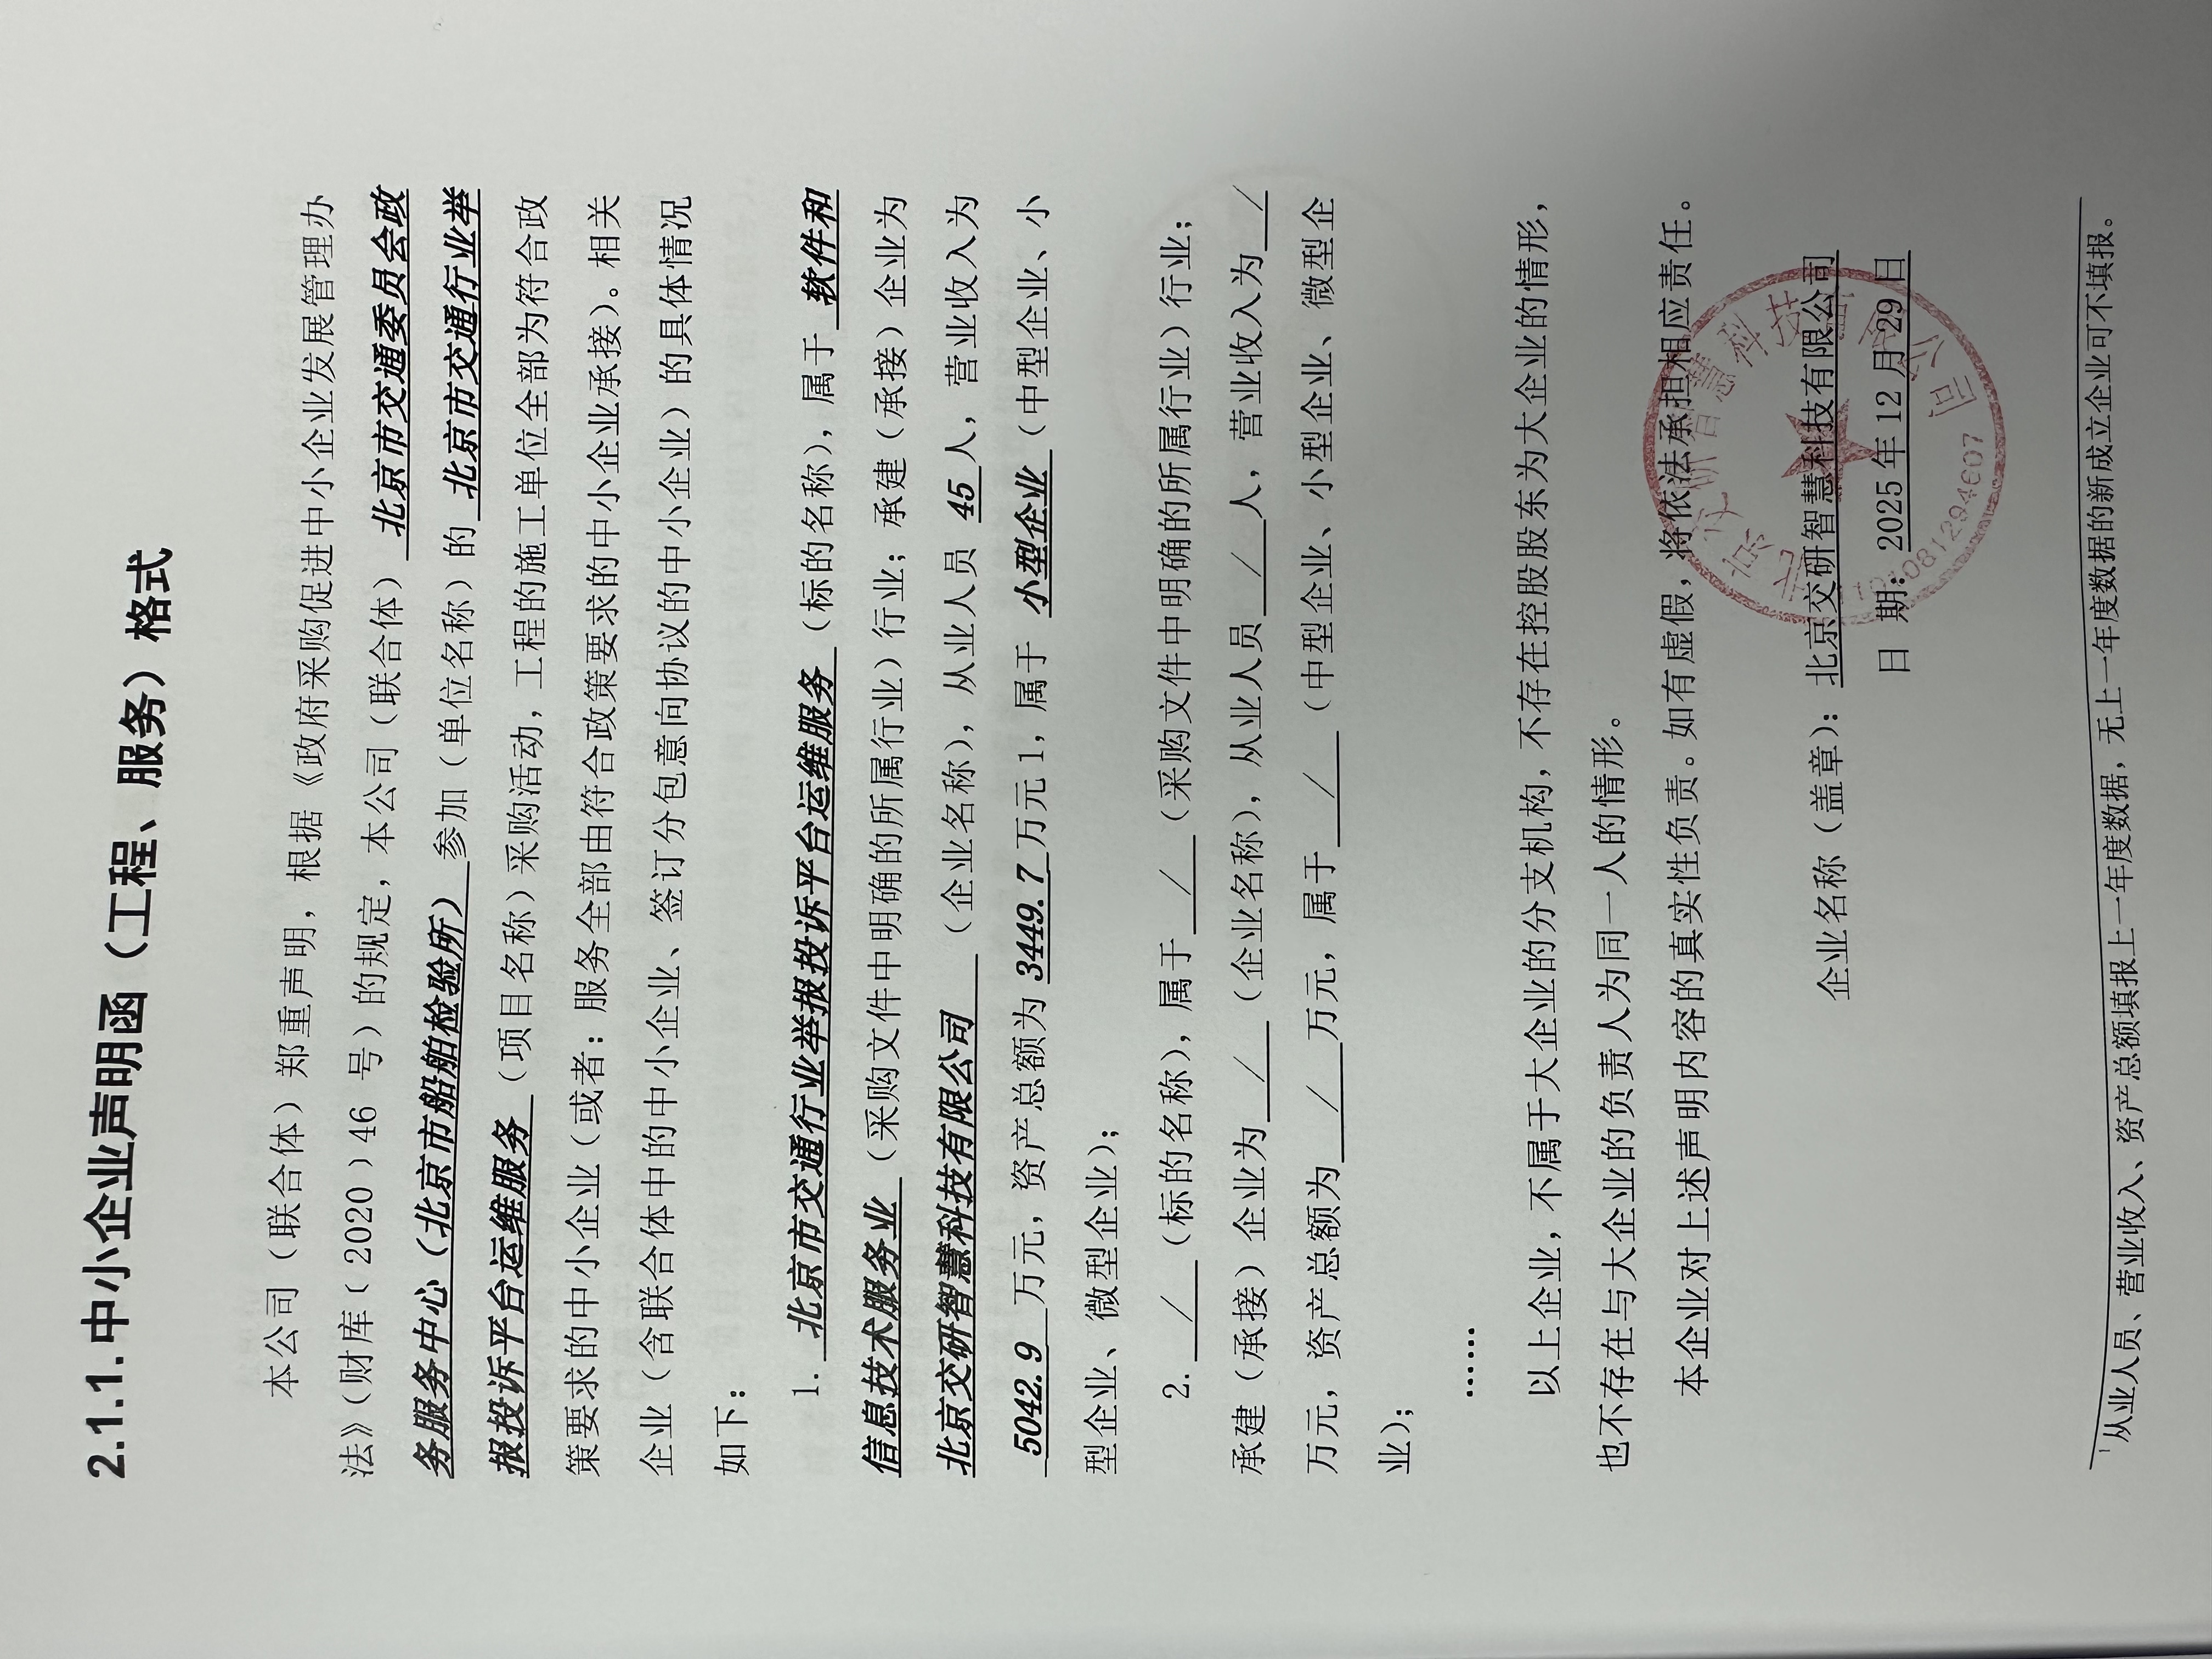 2.1.1.中小企业声明函（工程、服务）格式
本公司（联合体）郑重声明，根据《政府采购促进中小企业发展管理办
法》（财库﹝2020﹞46 号）的规定，本公司（联合体） 北京市交通委员会政
务服务中心（北京市船舶检验所） 参加（单位名称）的 北京市交通行业举
报投诉平台运维服务 （项目名称）采购活动，工程的施工单位全部为符合政
策要求的中小企业（或者：服务全部由符合政策要求的中小企业承接）。相关
企业（含联合体中的中小企业、签订分包意向协议的中小企业）的具体情况
如下：
1. 北京市交通行业举报投诉平台运维服务 （标的名称），属于 软件和
信息技术服务业 （采购文件中明确的所属行业）行业；承建（承接）企业为
北京交研智慧科技有限公司 （企业名称），从业人员 45 人，营业收入为
5042.9 万元，资产总额为 3449.7 万元1，属于 小型企业 （中型企业、小
型企业、微型企业）；
2. / （标的名称），属于 / （采购文件中明确的所属行业）行业；
承建（承接）企业为 / （企业名称），从业人员 / 人，营业收入为 /
万元，资产总额为 / 万元，属于 / （中型企业、小型企业、微型企
业）；
……
以上企业，不属于大企业的分支机构，不存在控股股东为大企业的情形，
也不存在与大企业的负责人为同一人的情形。
本企业对上述声明内容的真实性负责。如有虚假，将依法承担相应责任。
企业名称（盖章）：北京交研智慧科技有限公司
日 期：2025 年 12 月 29 日
北京交研智慧科技有限公司
1 从业人员、营业收入、资产总额填报上一年度数据，无上一年度数据的新成立企业可不填报。